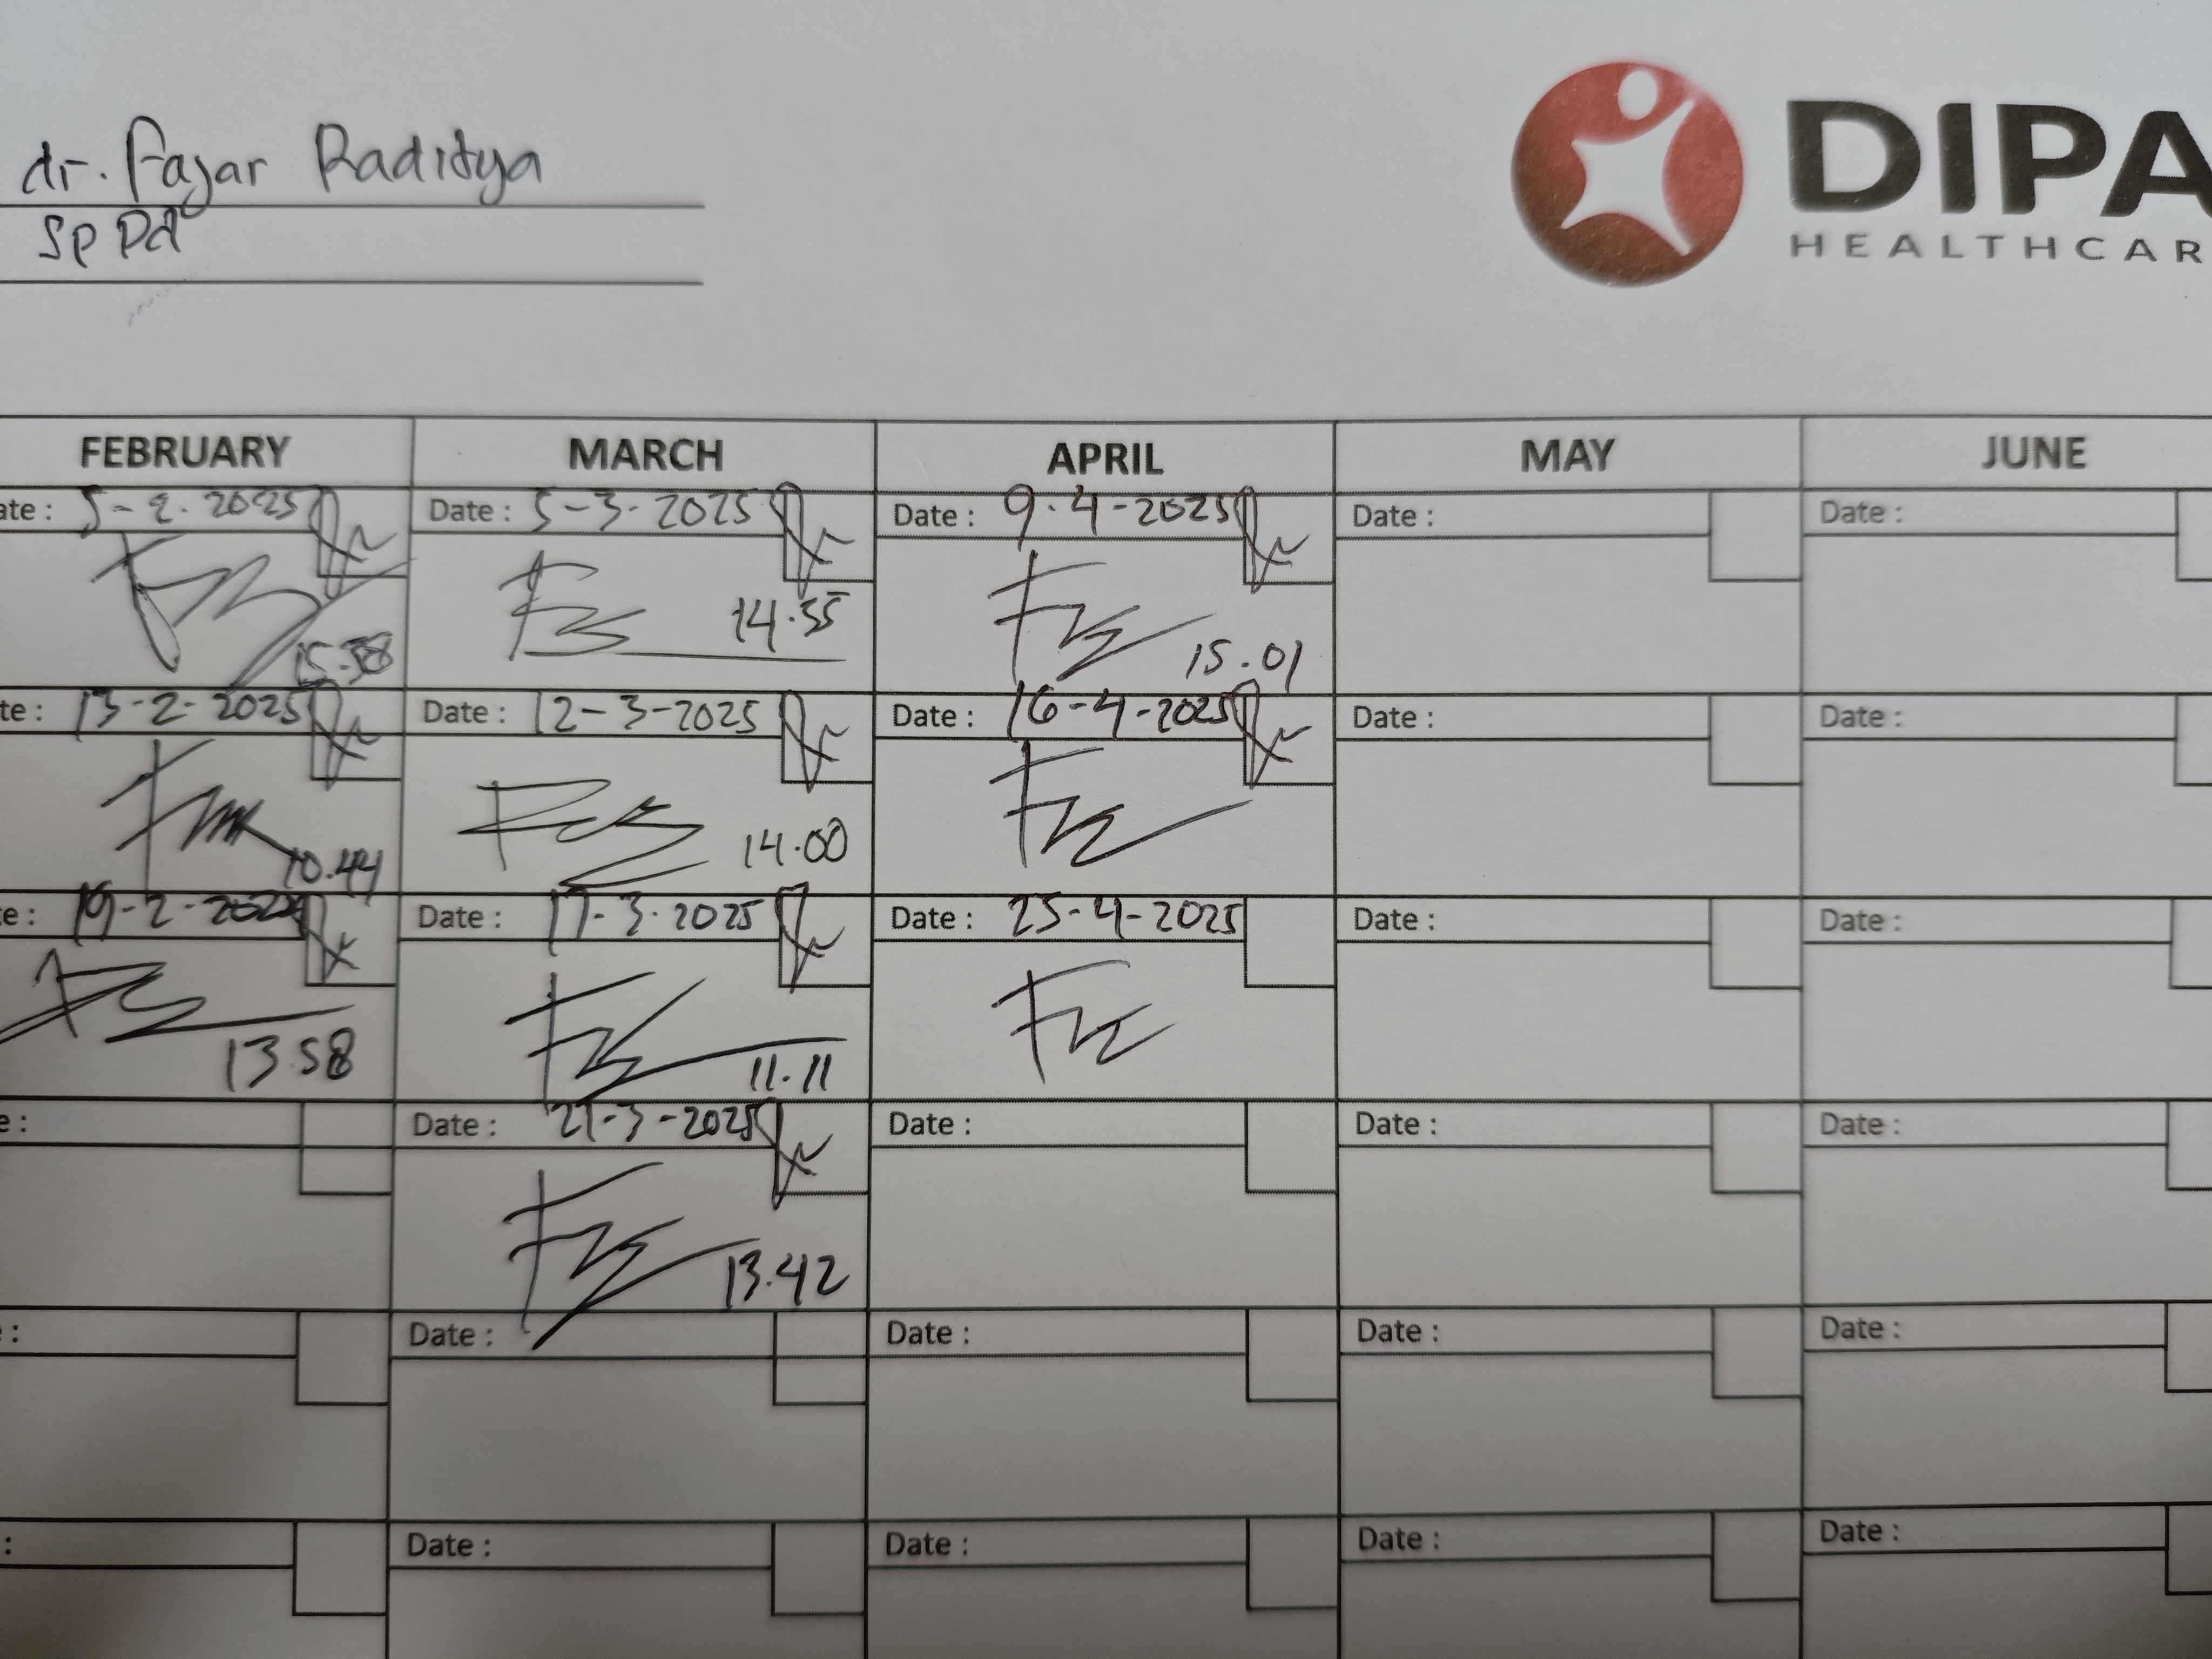 dr. Fajar Raditya
Sp Pd
DIPA
HEALTHCAR
FEBRUARY MARCH APRIL MAY JUNE
ate : 5-2-2025 Date : 5-3-2025 Date : 9-4-2025 Date : Date :
14.55 15.01
te : 13-2-2025 Date : 12-3-2025 Date : 16-4-2025 Date : Date :
10.44 14.00
e : 19-2-2025 Date : 17-3-2025 Date : 25-4-2025 Date : Date :
13.58 11.11
e : Date : 21-3-2025 Date : Date : Date :
13.42
: Date : Date : Date : Date :
: Date : Date : Date : Date :